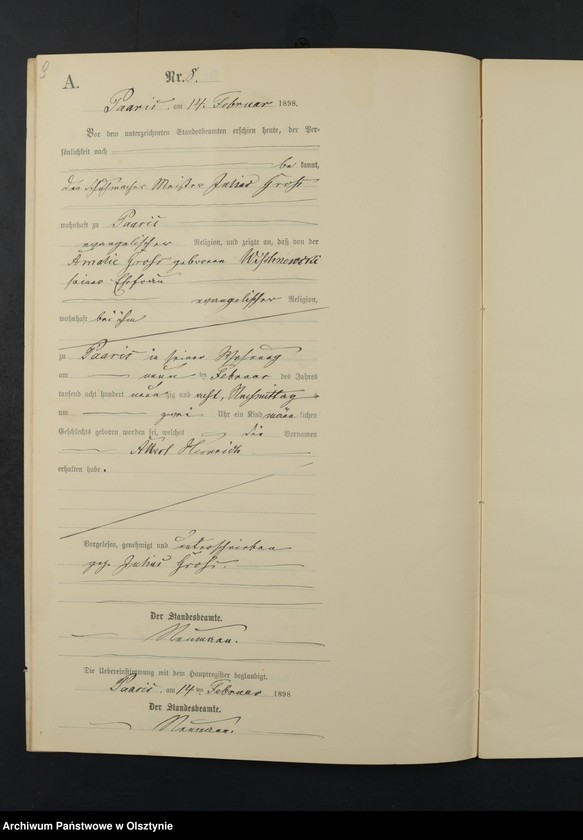 9
A.
Nr. 8.
Paaris, am 14. Februar 1898.
Vor dem unterzeichneten Standesbeamten erschien heute, der Per-
sönlichkeit nach
be kannt,
der Schuhmacher Meister Julius Grohs
wohnhaft zu Paaris
evangelischer Religion, und zeigte an, daß von der
Amalie Grohs geborenen
seiner Ehefrau
evangelischer Religion,
wohnhaft bei ihm
zu Paaris in seiner Wohnung
am neun ten Februar des Jahres
tausend acht hundert neun zig und acht, Nachmittag s
um zwei Uhr ein Kind männ lichen
Geschlechts geboren worden sei, welches die Vornamen
Albert Heinrich
erhalten habe.
Vorgelesen, genehmigt und unterschrieben
gez. Julius Grohs.
Der Standesbeamte.
Neumann.
Die Uebereinstimmung mit dem Hauptregister beglaubigt.
Paaris, am 14 ten Februar 1898
Der Standesbeamte.
Neumann.
Archiwum Państwowe w Olsztynie